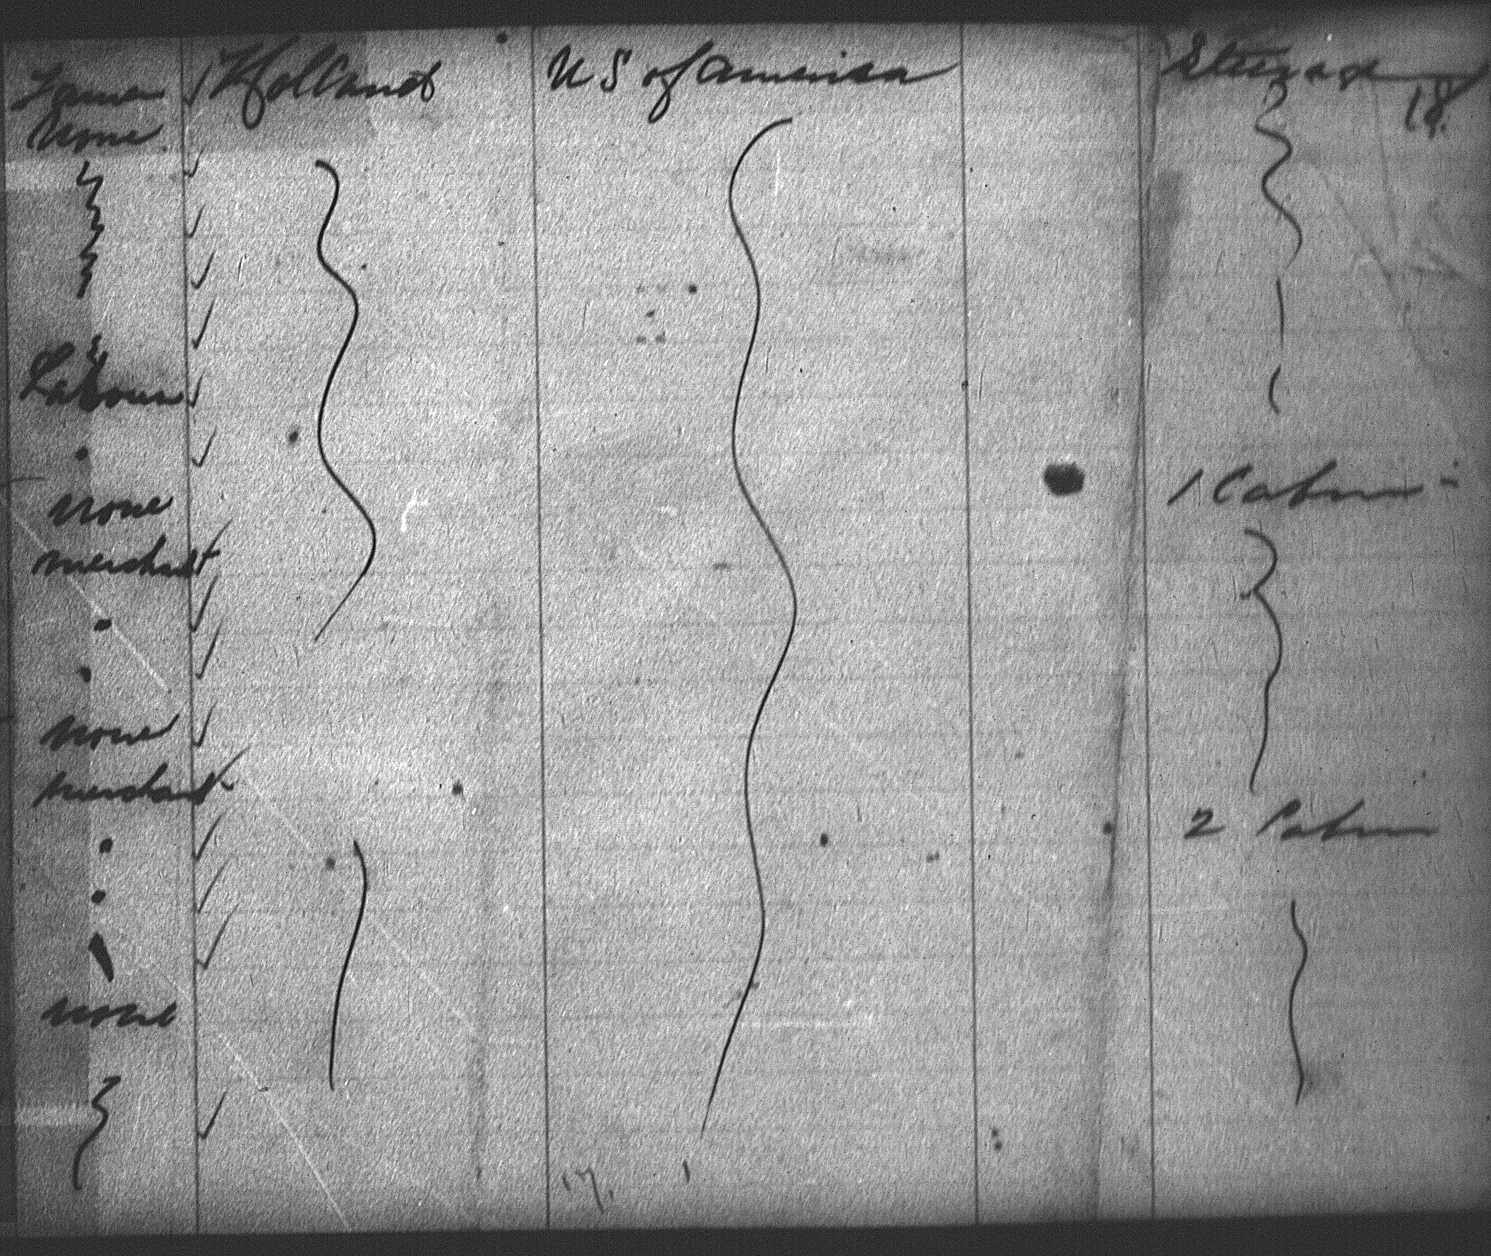 Farmer Holland U S of America Steerage
None 18
Labour
none 1 Cabin
merchant
none
merchant
2 Cabin
none
17